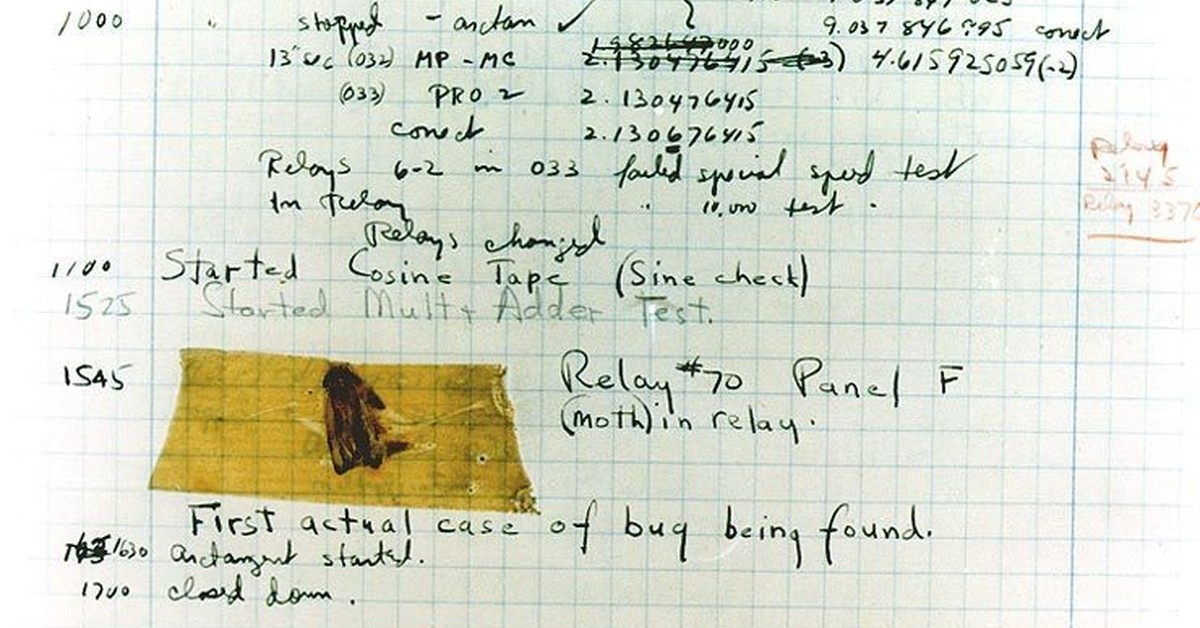 1000 " stopped - arctan ✓ 9.037 846 995 correct
13"uc (032) MP - MC 2.130476415 (-3) 4.615925059(-2)
(033) PRO 2 2.130476415
correct 2.130676415
Relays 6-2 in 033 failed special speed test
In Relay " 10,000 test .
Relays changed
1100 Started Cosine Tape (Sine check)
1525 Started Mult + Adder Test.
1545 Relay #70 Panel F
(moth) in relay.
First actual case of bug being found.
1630 arctangent started.
1700 closed down .
Relay
2145
Relay 337